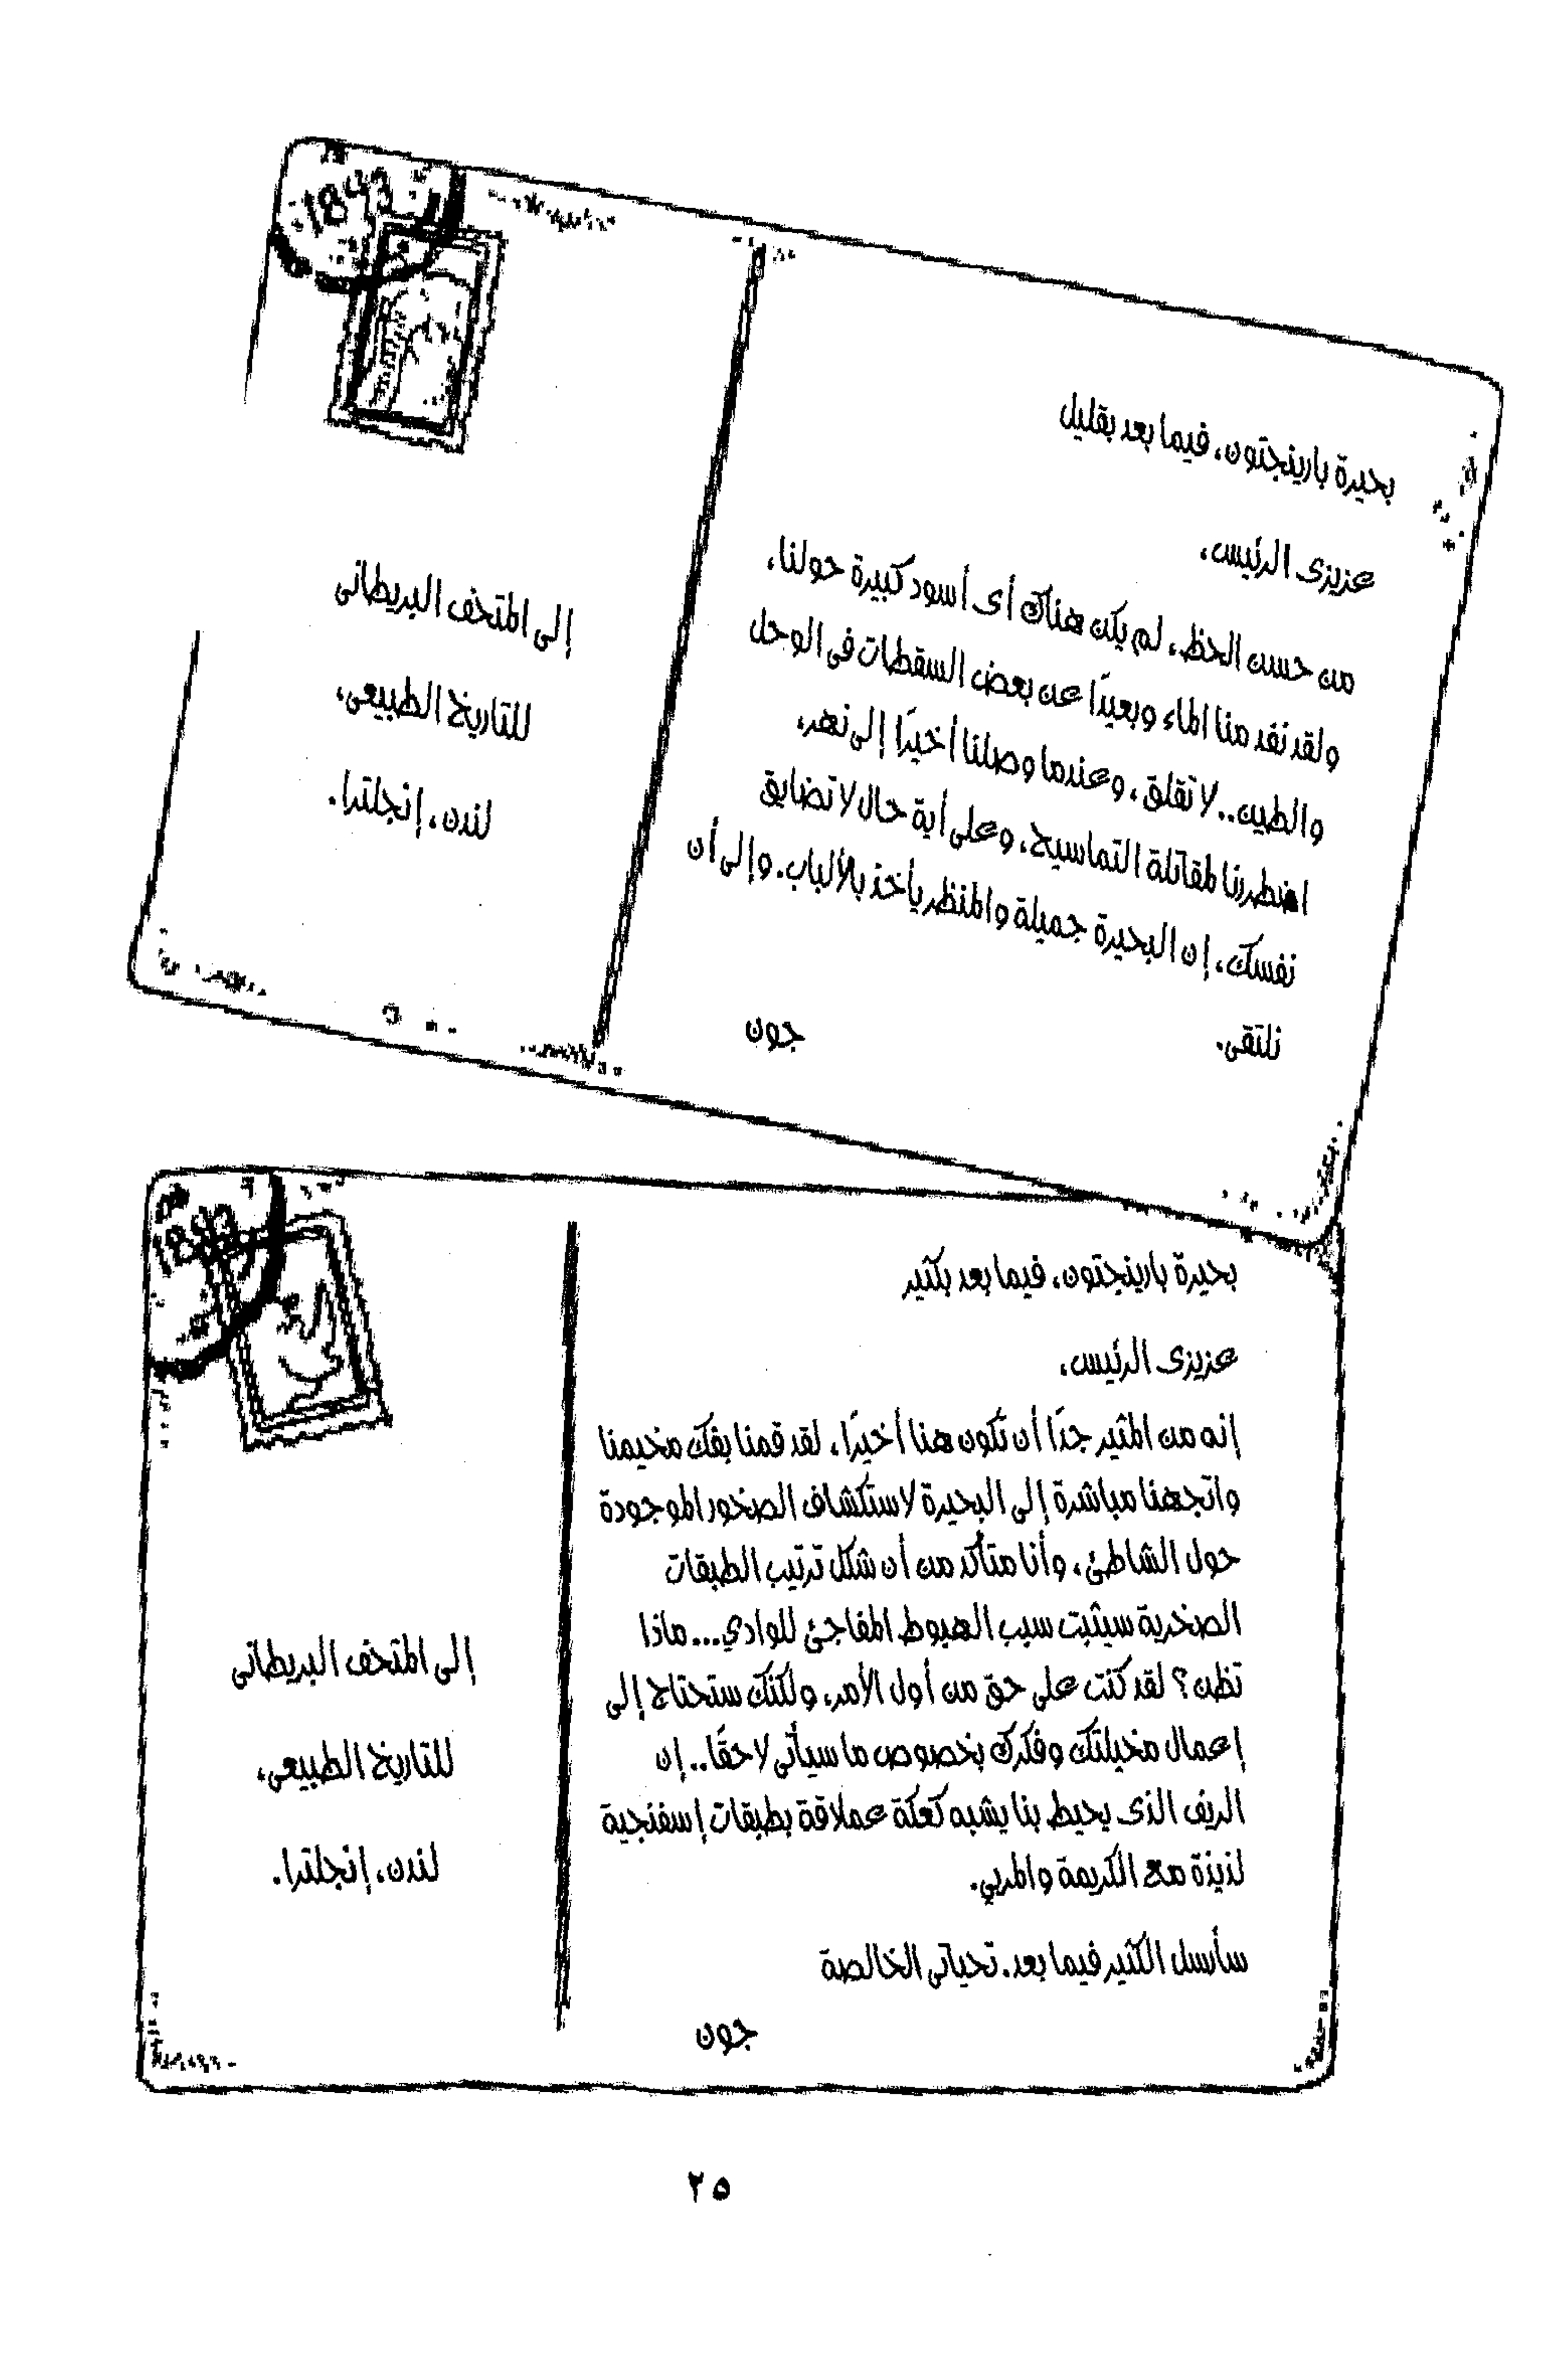 بحيرة بارينجتون، فيما بعد بقليل
عزيزى الرئيس،
من حسن الحظ، لم يكن هناك أى أسود كبيرة حولنا،
ولقد نفد منا الماء وبعيدًا عن بعض السقطات فى الوحل
والطين.. لا تقلق، وعندما وصلنا أخيرًا إلى نهر،
اضطررنا لمقاتلة التماسيح، وعلى أية حال لا تضايق
نفسك، إن البحيرة جميلة والمنظر يأخذ بالألباب. وإلى أن
نلتقى.
جون
1893
إلى المتحف البريطانى
للتاريخ الطبيعى،
لندن، إنجلترا.
بحيرة بارينجتون، فيما بعد بكثير
عزيزى الرئيس،
إنه من المثير جدًا أن نكون هنا أخيرًا، لقد قمنا بفك مخيمنا
واتجهنا مباشرة إلى البحيرة لاستكشاف الصخور الموجودة
حول الشاطئ، وأنا متأكد من أن شكل ترتيب الطبقات
الصخرية سيثبت سبب الهبوط المفاجئ للوادي... ماذا
تظن؟ لقد كنت على حق من أول الأمر، ولكنك ستحتاج إلى
إعمال مخيلتك وفكرك بخصوص ما سيأتى لاحقًا.. إن
الريف الذى يحيط بنا يشبه كعكة عملاقة بطبقات إسفنجية
لذيذة مع الكريمة والمربي.
سأرسل الكثير فيما بعد. تحياتى الخالصة
جون
1893
إلى المتحف البريطانى
للتاريخ الطبيعى،
لندن، إنجلترا.
٢٥